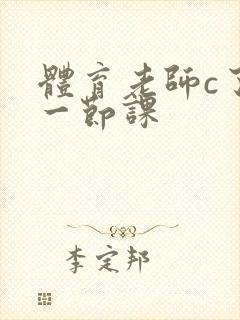 體育老師c了
一節課
李定邦